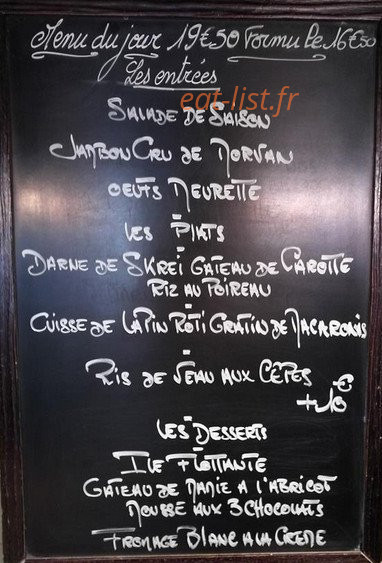 Menu du jour 19€50 Formule 16€50
Les entrées
eat-list.fr
SALADE DE SAISON
JAMBON CRU DE MORVAN
OEUFS MEURETTE
LES PLATS
DARNE DE SKREI GATEAU DE CAROTTE
RIZ AU POIREAU
CUISSE DE LAPIN ROTI GRATIN DE MACARONIS
RIS DE VEAU AUX CÊPES
LES DESSERTS
ILE FLOTTANTE
GATEAU DE MAMIE A L'ABRICOT
MOUSSE AUX 3 CHOCOLATS
FROMAGE BLANC A LA CREME